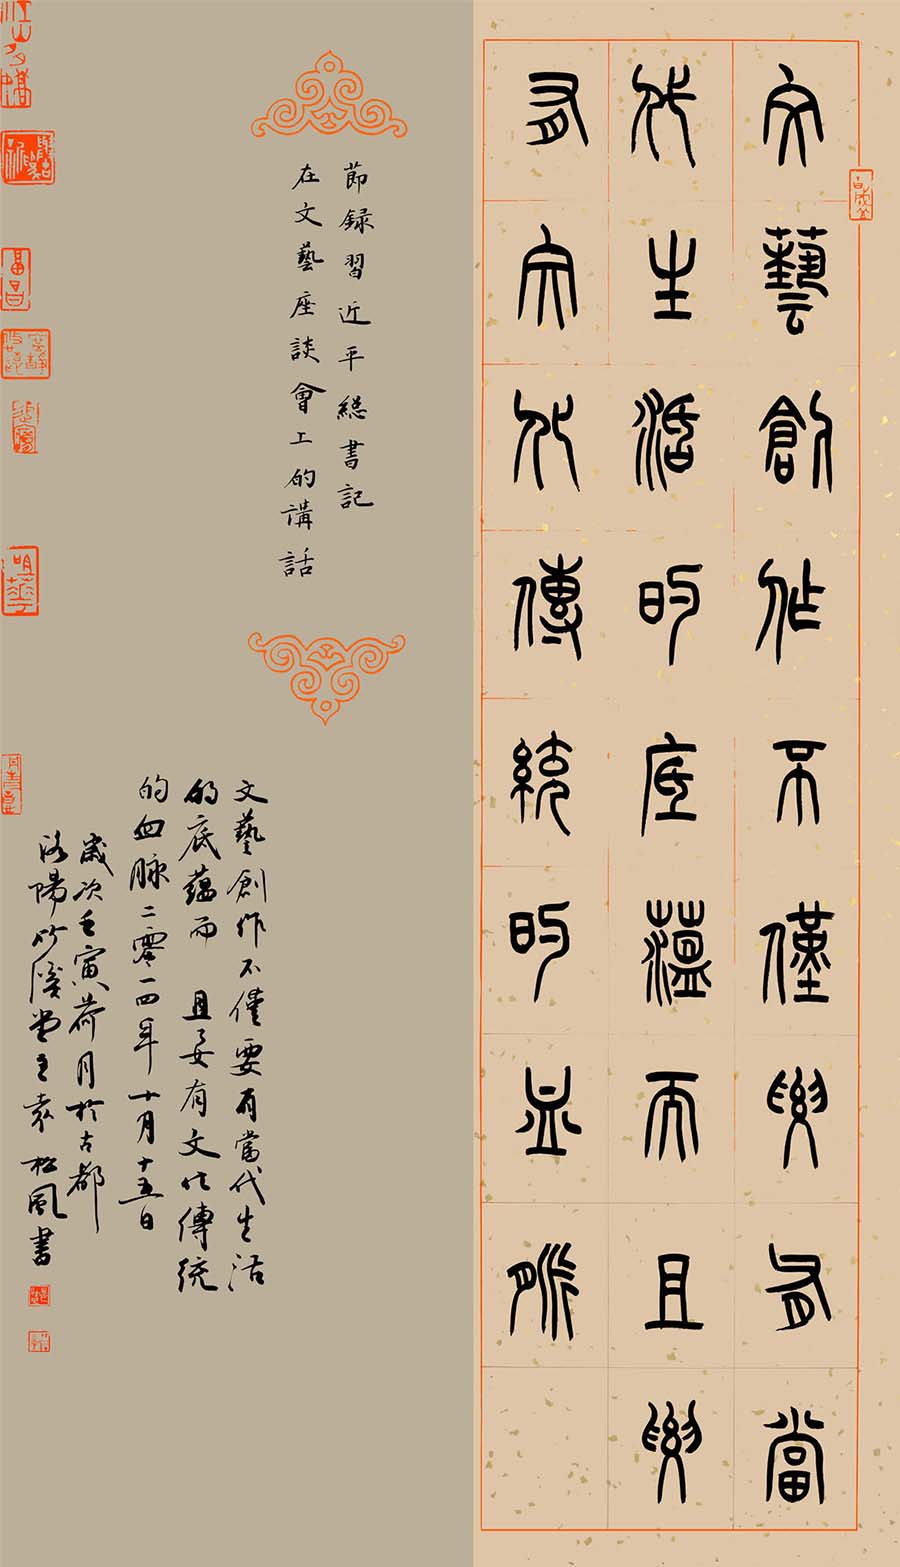 文藝創作不僅要有當
代生活的底藴而且要
有文化傳統的血脈
節録習近平総書記
在文藝座談會上的講話
文藝創作不僅要有當代生活
的底蕴而且要有文化傳統
的血脉二零一四年十月十五日
歲次壬寅荷月於古都
洛陽竹堂主袁松風書